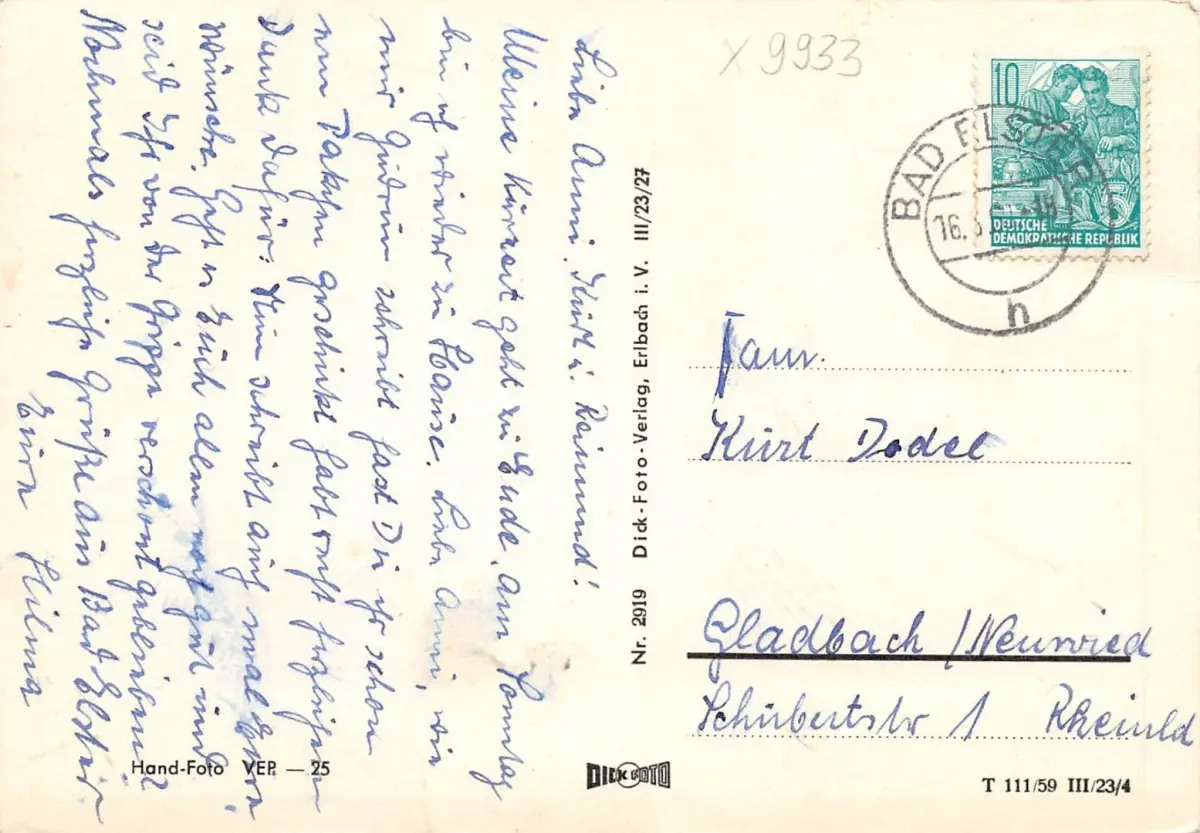 Liebe Anni, Kurt u. Reimund!
Meine Kurzeit geht zu Ende, am Sonntag
bin ich wieder zu Hause. Liebe Anni, wie
mir Gudrun schreibt hast Du ihr schon
ein Pakchen geschickt habt recht herzlichen
Dank dafür. Nun schreibt auch mal Eure
Wünsche. Geht es Euch allen noch gut und
seid Ihr von der Grippe verschont geblieben?
Nochmals herzliche Grüße aus Bad Elster
Eure Hilma
Hand-Foto VEP. — 25
Nr. 2919 Dick-Foto-Verlag, Erlbach i. V. III/23/27
DICK FOTO
X 9933
10
5
DEUTSCHE
DEMOKRATISCHE REPUBLIK
BAD ELSTER
16.
h
Fam.
Kurt Dodel
Gladbach / Neuwied
Schubertstr 1 Rheinld
T 111/59 III/23/4